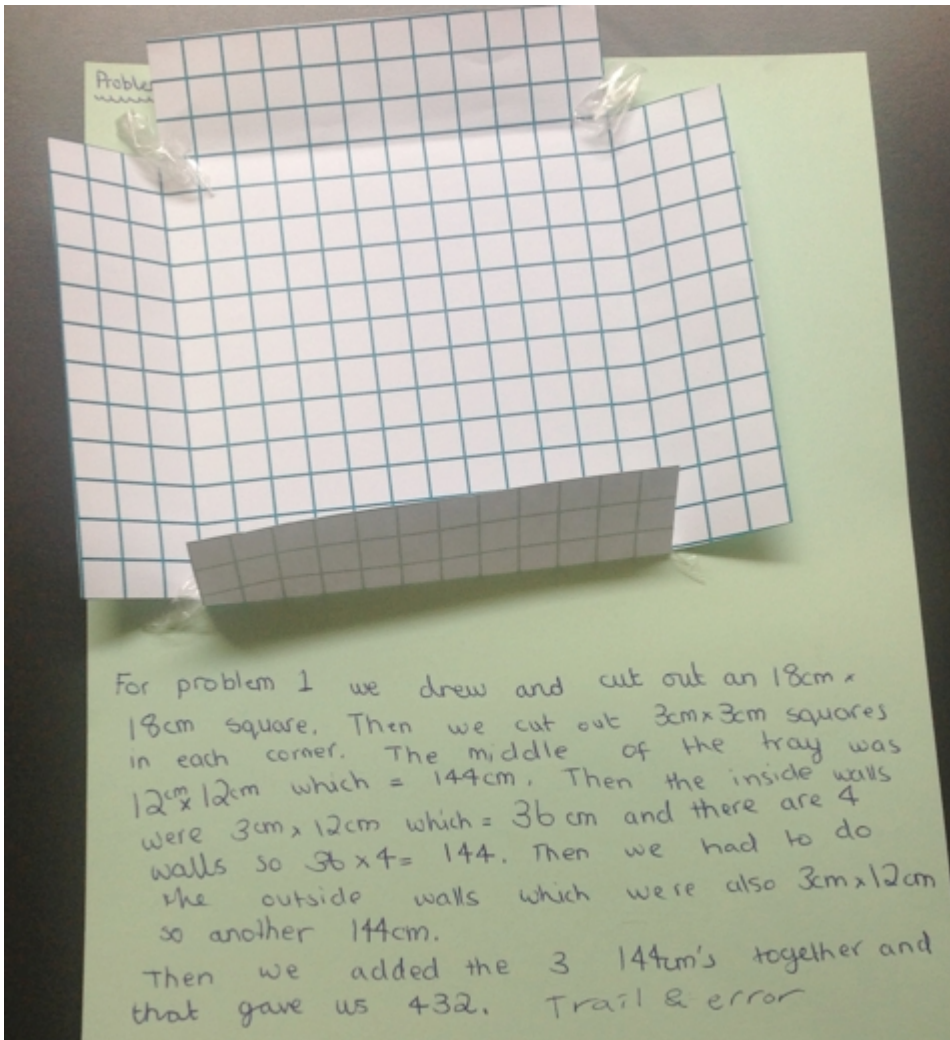 Proble
For problem 1 we drew and cut out an 18cm ×
18cm square. Then we cut out 3cm × 3cm squares
in each corner. The middle of the tray was
12cm × 12cm which = 144cm. Then the inside walls
were 3cm × 12cm which = 36 cm and there are 4
walls so 36 × 4 = 144. Then we had to do
the outside walls which were also 3cm × 12cm
so another 144cm.
Then we added the 3 144cm's together and
that gave us 432. Trail & error